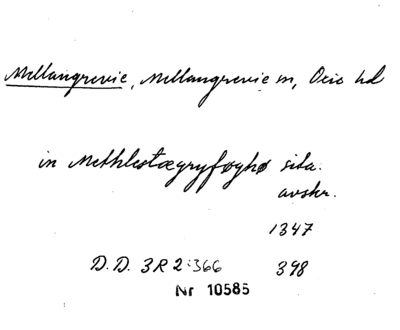 Mellangrevie, Mellangrevie sn, Oxie hd
in Methlestægryføghø sita.
avskr.
1347
D.D. 3R 2:366 398
Nr 10585